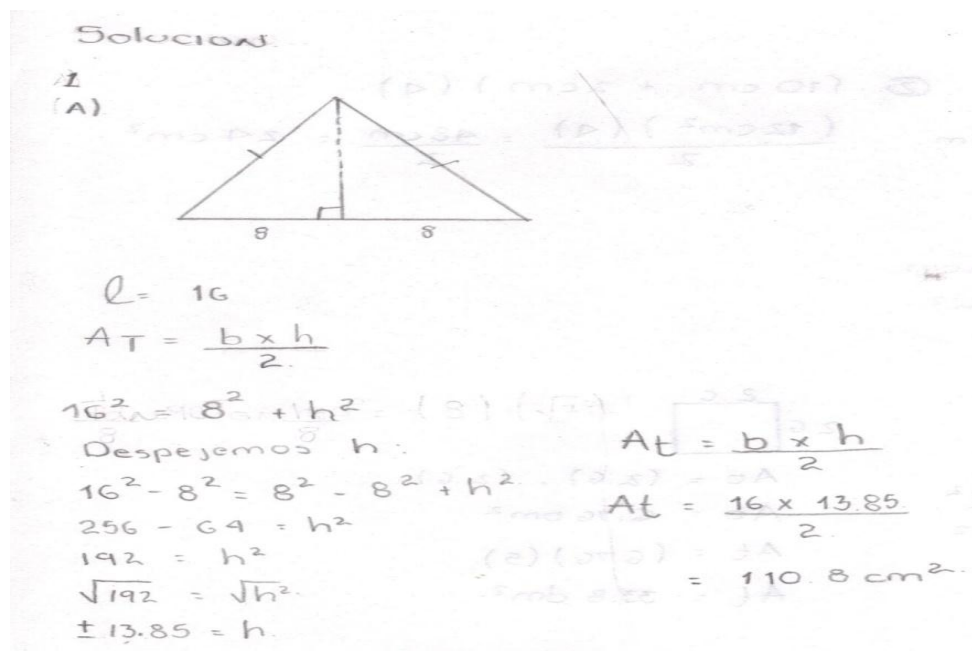 Solucion
1
(A)
8 8
l = 16
AT = b x h / 2.
16² = 8² + h²
Despejemos h:
16² - 8² = 8² - 8² + h²
256 - 64 = h²
192 = h²
√192 = √h².
± 13.85 = h
At = b x h / 2
At = 16 x 13.85 / 2.
= 110.8 cm².